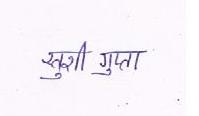 खुशी गुप्ता